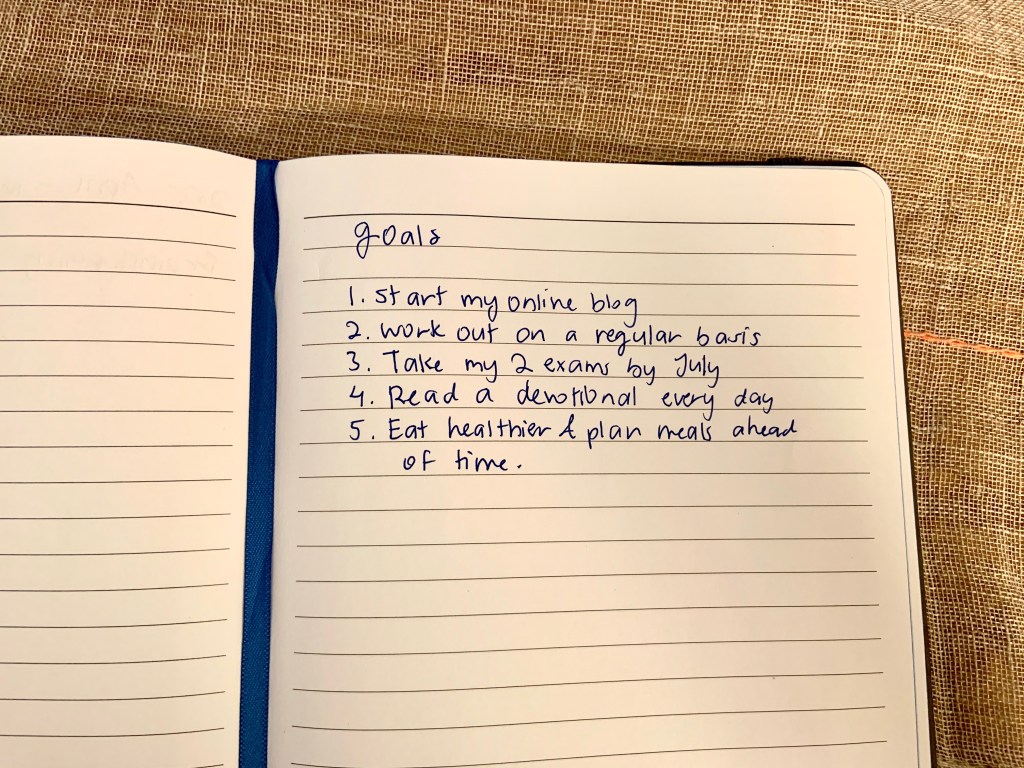 goals
1. start my online blog
2. work out on a regular basis
3. Take my 2 exams by July
4. Read a devotional every day
5. Eat healthier & plan meals ahead
of time.